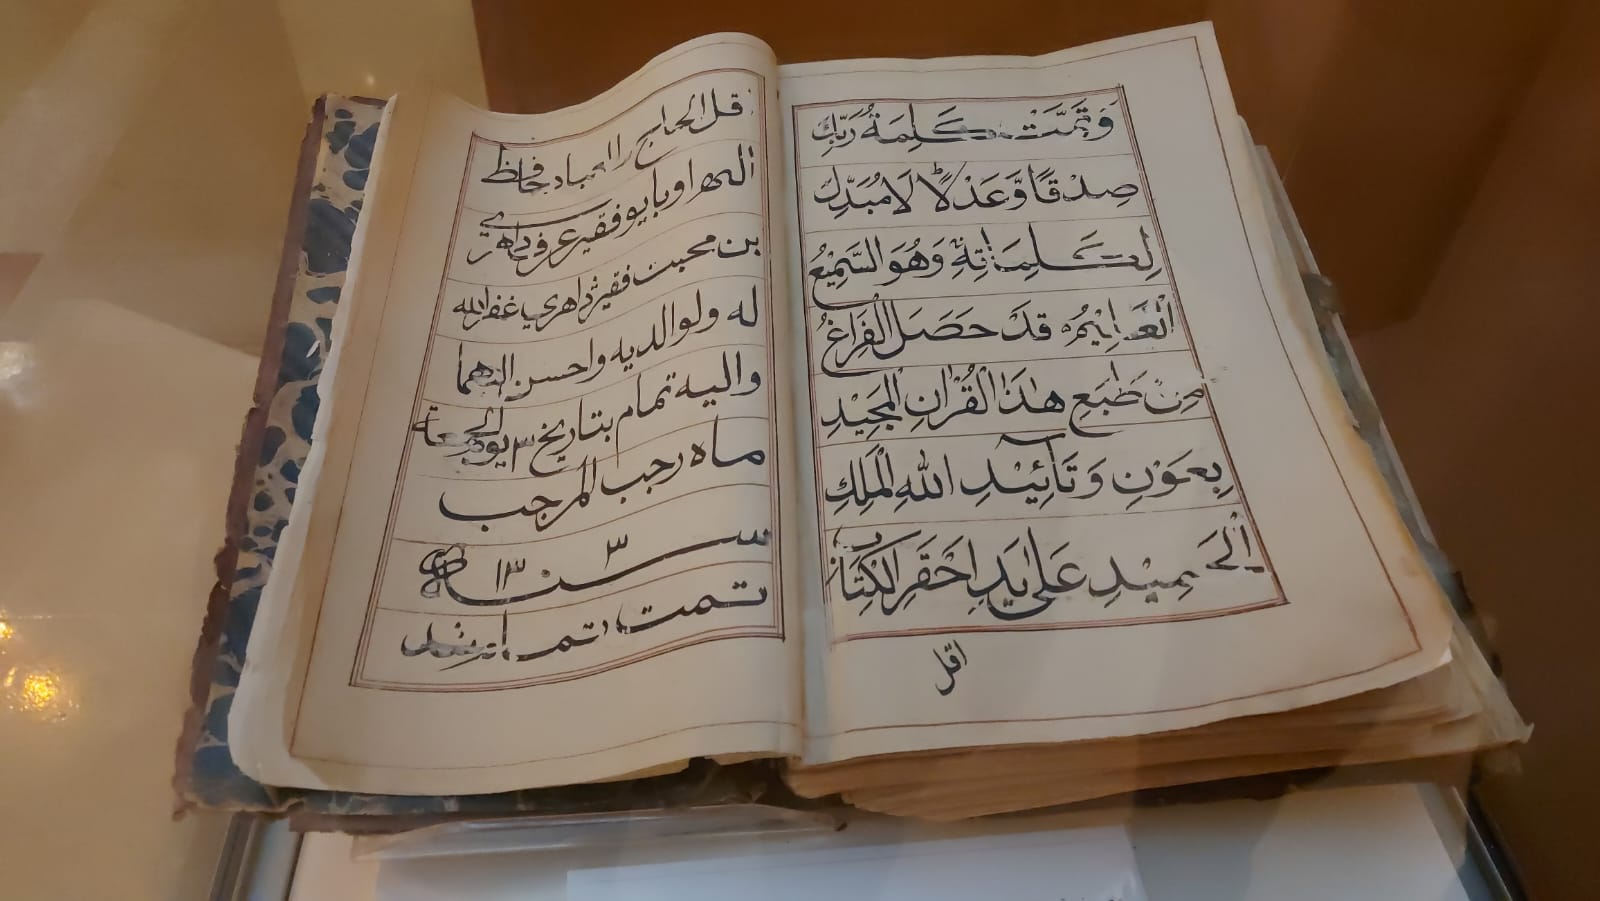 وَتَمَّتْ كَلِمَةُ رَبِّكَ
صِدْقًا وَّعَدْلًا لَا مُبَدِّلَ
لِكَلِمَاتِهٖ وَهُوَ السَّمِيْعُ
الْعَلِيْمُ قَدْ حَصَلَ الْفَرَاغُ
مِنْ طَبَعِ هٰذَا الْقُرْاٰنِ الْمَجِيْدِ
بِعَوْنِ وَتَآئِيْدِ اللهِ الْمَلِكِ
الْحَمِيْدِ عَلٰى يَدِ اَحْقَرِ الْكُتَّابِ
اقل
اقل الحاج العباد حافظ
الهداوبايو فقير عرف
بن محبت فقير ڈاهري غفر الله
له ولوالديه واحسن اليهما
واليه تمام بتاريخ ٣ يوم الجمعة
ماه رجب المرجب
سنه ١٣ ٣
تمت تمام شد